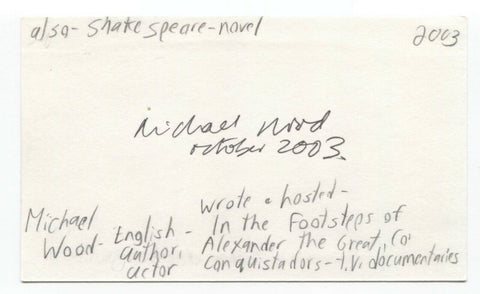 also- Shakespeare-novel
2003
Michael Wood
october 2003.
Michael Wood- English - author, actor
wrote & hosted-
In the Footsteps of
Alexander the Great,
Conquistadors-t.v. documentaries